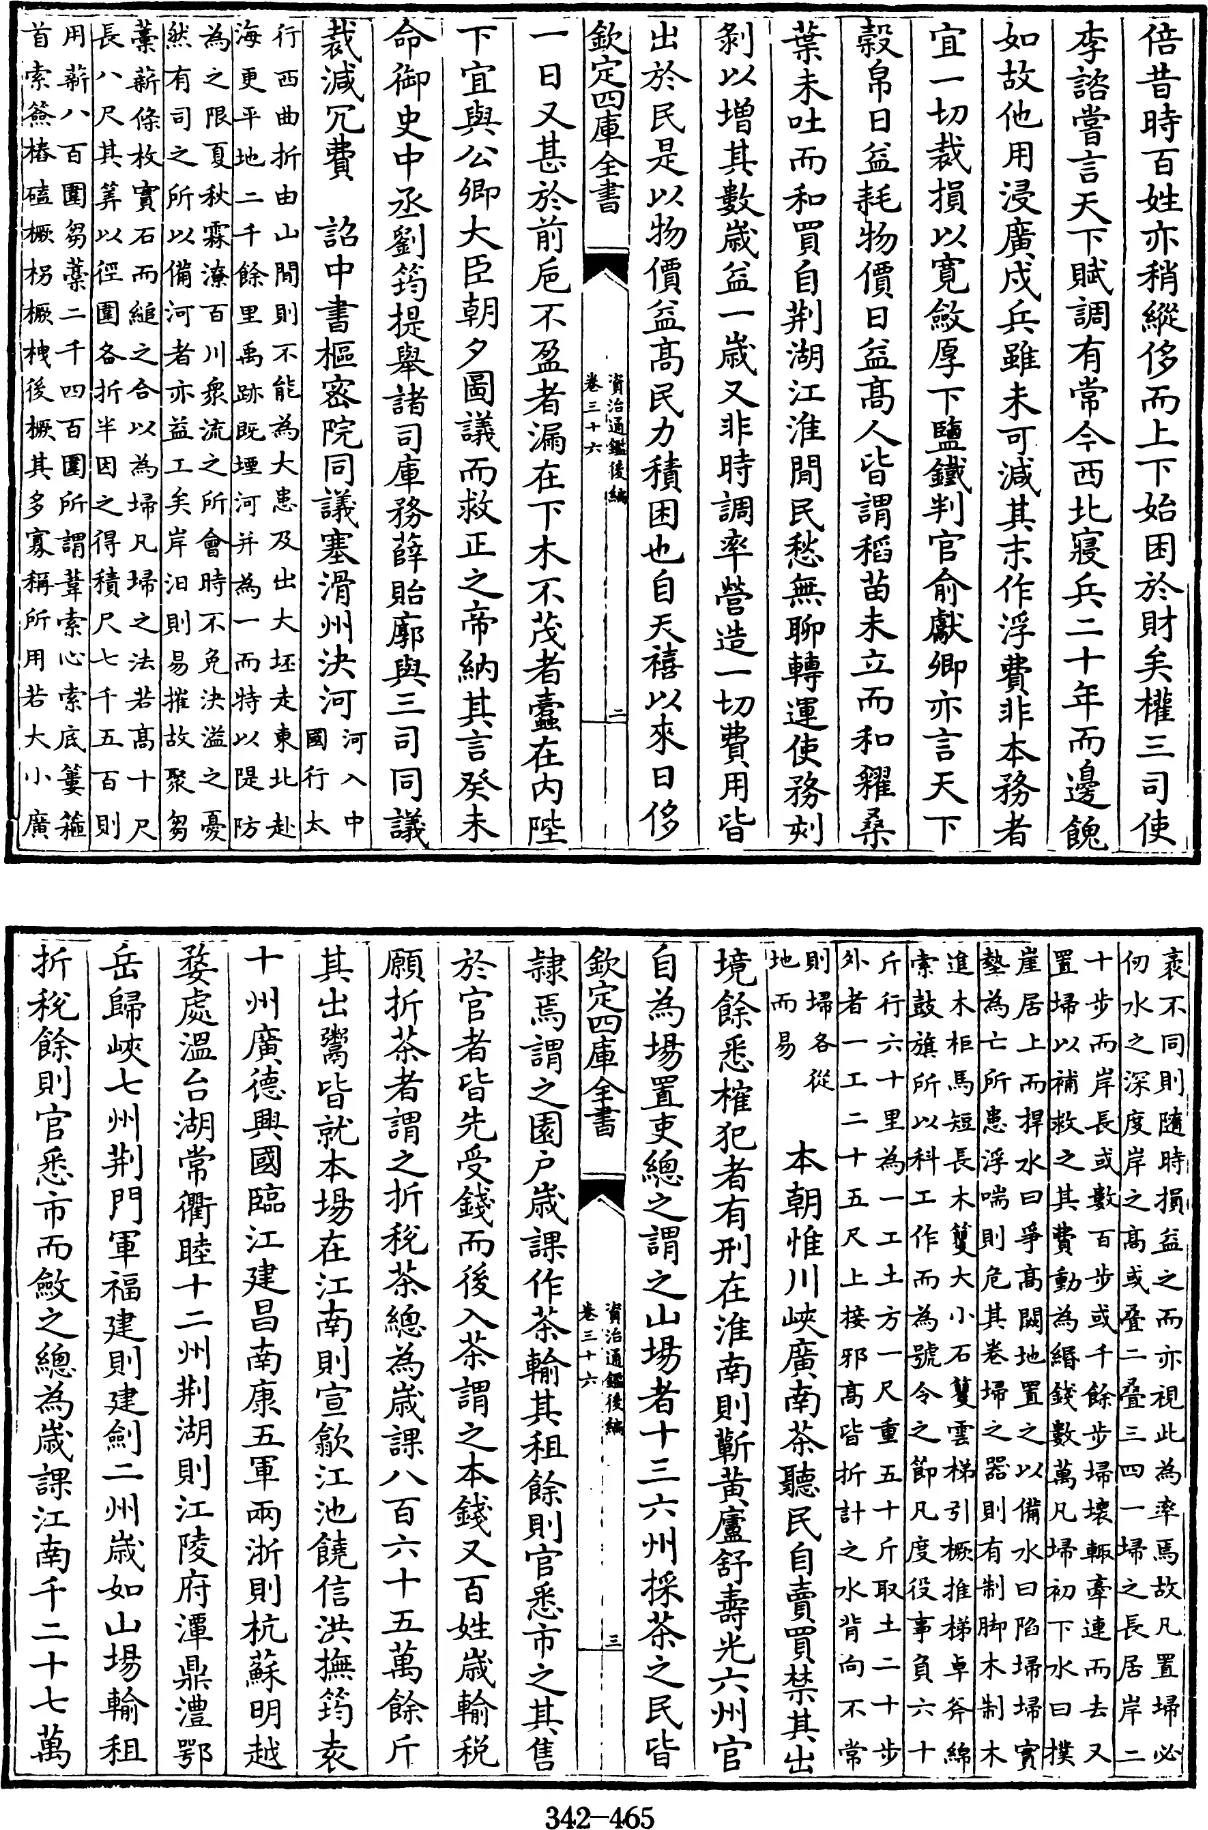 倍昔時百姓亦稍縱侈而上下始困於財矣權三司使
李諮嘗言天下賦調有常今西北寢兵二十年而邊餽
如故他用浸廣戍兵雖未可減其末作浮費非本務者
宜一切裁損以寬斂厚下鹽鐵判官俞獻卿亦言天下
穀帛日益耗物價日益高人皆謂稻苗未立而和糴桑
葉未吐而和買自荆湖江淮間民愁無聊轉運使務刻
剝以增其數歲益一歲又非時調率營造一切費用皆
出於民是以物價益高民力積困也自天禧以來日侈
欽定四庫全書
資治通鑑後編
卷三十六
二
一日又甚於前巵不盈者漏在下木不茂者蠹在内陛
下宜與公卿大臣朝夕圖議而救正之帝納其言癸未
命御史中丞劉筠提舉諸司庫務薛貽廓與三司同議
裁減冗費 詔中書樞密院同議塞滑州決河
河入中
國行太
行西曲折由山間則不能為大患及出大坯走東北赴
海更平地二千餘里禹跡既堙河并為一而特以隄防
為之限夏秋霖潦百川衆流之所會時不免決溢之憂
然有司之所以備河者亦益工矣岸汩則易摧故聚芻
藁薪條枚實石而縋之合以為埽凡埽之法若高十尺
長八尺其筭以徑圍各折半因之得積尺七千五百則
用薪八百圍芻藁二千四百圍所謂葦索心索底簍箍
首索簽樁磕橛拐橛拽後橛其多寡稱所用若大小廣
袤不同則隨時損益之而亦視此為率焉故凡置埽必
仞水之深度岸之高或叠二叠三四一埽之長居岸二
十步而岸長或數百步或千餘步埽壞輒牽連而去又
置埽以補救之其費動為緡錢數萬凡埽初下水曰撲
崖居上而捍水曰爭高闕地置之以備水曰陷埽埽實
墊為亡所患浮喘則危其卷埽之器則有制脚木制木
進木柜馬短長木籆大小石籆雲梯引橛推梯卓斧綿
索鼓旗所以科工作而為號令之節凡度役事負六十
斤行六十里為一工土方一尺重五十斤取土二十步
外者一工二十五尺上接邪高皆折計之水背向不常
則埽各從
地而易
本朝惟川峽廣南茶聽民自賣買禁其出
境餘悉榷犯者有刑在淮南則蘄黄廬舒壽光六州官
自為場置吏總之謂之山場者十三六州採茶之民皆
欽定四庫全書
資治通鑑後編
卷三十六
三
隸焉謂之園户歲課作茶輸其租餘則官悉市之其售
於官者皆先受錢而後入茶謂之本錢又百姓歲輸稅
願折茶者謂之折稅茶總為歲課八百六十五萬餘斤
其出鬻皆就本場在江南則宣歙江池饒信洪撫筠袁
十州廣德興國臨江建昌南康五軍兩浙則杭蘇明越
婺處溫台湖常衢睦十二州荆湖則江陵府潭鼎澧鄂
岳歸峽七州荆門軍福建則建劍二州歲如山場輸租
折稅餘則官悉市而斂之總為歲課江南千二十七萬
342-465